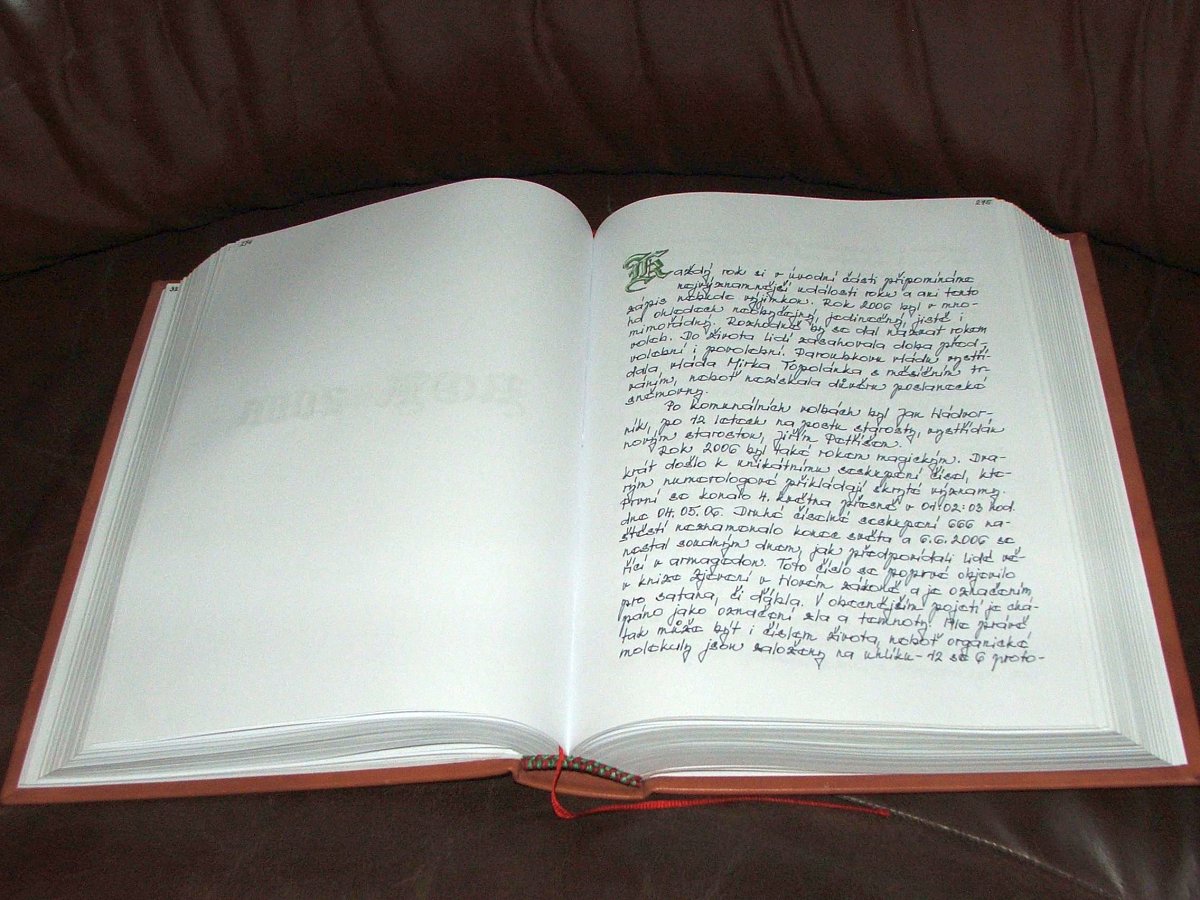 274
32
275
Každý rok si v úvodní části připomínáme
nejvýznamnější události roku a ani tento
zápis nebude výjimkou. Rok 2006 byl v mno-
ha ohledech neobyčejný, jedinečný, jistě i
mimořádný. Rozhodně by se dal nazvat rokem
voleb. Do života lidí zasahovala doba před-
volební i povolební. Paroubkovu vládu vystří-
dala vláda Mirka Topolánka s měsíčním tr-
váním, neboť nezískala důvěru poslanecké
sněmovny.
Po komunálních volbách byl Jan Nádvor-
ník, po 12 letech na postu starosty, vystřídán
novým starostou, Jiřím
Rok 2006 byl také rokem magickým. Dva-
krát došlo k unikátnímu seskupení čísel, kte-
rým numerologové přikládají skryté významy.
První se konalo 4. května přesně v 01:02:03 hod.
dne 04.05.06. Druhé číselné seskupení 666 na-
štěstí neznamenalo konec světa a 6.6.2006 se
nestal soudným dnem, jak předpovídali lidé vě-
řící v armagedon. Toto číslo se poprvé objevilo
v knize Zjevení v Novém zákoně a je označením
pro satana, či ďábla. V obecnějším pojetí je chá-
páno jako označení zla a temnoty. Ale právě
tak může být i číslem života, neboť organické
molekuly jsou založeny na uhlíku - 12 se 6 proto-